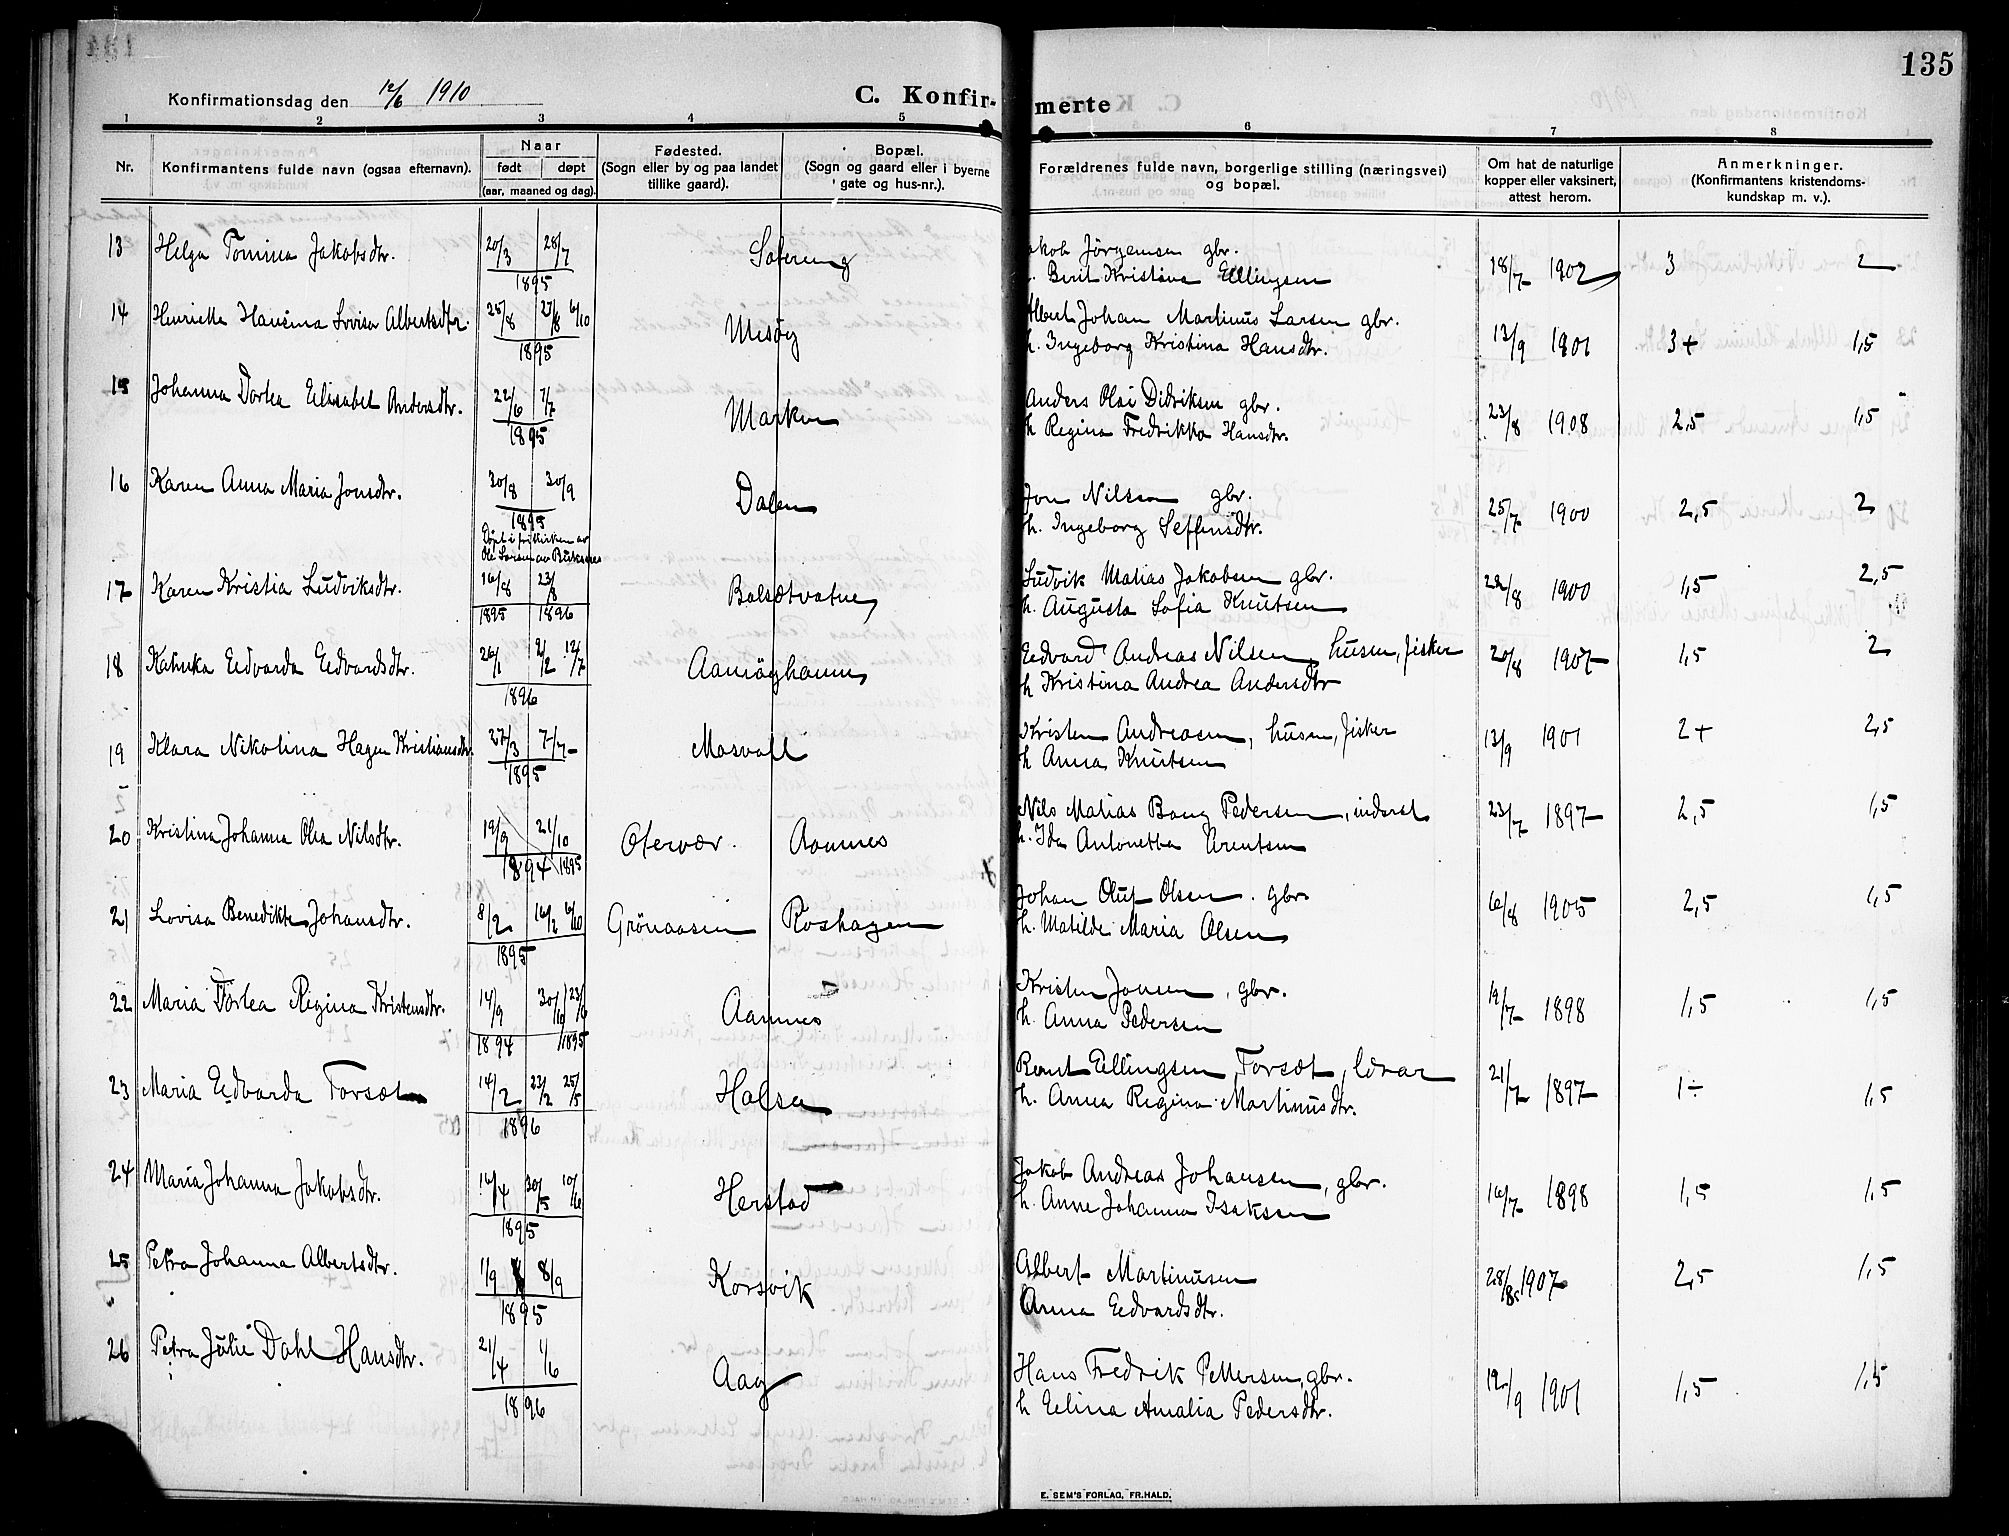 135
Konfirmationsdag den 12/6 1910
C. Konfirmerte
1 2 3 4 5 6 7 8
Nr.
Konfirmantens fulde navn (ogsaa efternavn).
Naar
født døpt
(aar, maaned og dag).
Fødested.
(Sogn eller by og paa landet
tillike gaard).
Bopæl.
(Sogn og gaard eller i byerne
gate og hus-nr.).
Forældrenes fulde navn, borgerlige stilling (næringsvei)
og bopæl.
Om hat de naturlige
kopper eller vaksinert,
attest herom.
Anmerkninger.
(Konfirmantens kristendoms-
kundskap m. v.).
13 Helga Tomina Jakobsdtr. 20/3 28/7 akob Jörgensen gbr.
1895 Berit Kristina Ellingsen 18/7 1902 3 2
14 Henriette Hansina Lovisa Albertsdtr. 25/8 27/8 6/10 Mesöy Albert Johan Martinus Larsen gbr.
1895 h. Ingeborg Kristina Hansdtr. 13/9 1901 3+ 1,5
15 Johanna Dortea Elisabet Andersdtr. 22/6 7/7 Marken Anders Olai Didriksen gbr.
1895 h Regina Fredrikka Hansdtr. 23/8 1908 2,5 1,5
16 Karen Anna Maria Jonsdtr. 30/8 30/9 Dalen Jon Nilsen gbr.
1895 h. Ingeborg Seffensdtr. 25/7 1900 2,5 2
Döpt i frikirken av
Ole Larsen av Buksnes
17 Karen Kristia Ludviksdtr. 16/8 23/8 Balsætvatne Ludvik Matias Jakobsen gbr.
1895 1896 h. Augusta Sofia Knutsen 22/8 1900 1,5 2,5
18 Edvarda Edvardsdtr. 26/1 9/2 12/7 Aamöyhamn Edvard Andreas Nilsen, husm, fisker
1896 h Kristina Andrea Andersdtr 20/8 1907 1,5 2
19 Klara Nikolina Hagen Kristiansdtr. 27/3 7/7 Mosvoll Kristen Andreasen, husm, fisker
1895 h Anna Knutsen 13/9 1901 2+ 2,5
20 Kristina Johanna Olea Nilsdtr. 19/9 21/10 Otervær. Aamnes Nils Matias Bang Pedersen, inderst
1894 1895 h. Ida Antonetta Arentsen 23/7 1897 2,5 1,5
21 Lovisa Benedikte Johansdtr. 8/2 16/2 6/10 Grönaasen Roshagen Johan Oluf Olsen. gbr
1895 h. Matilde Maria Olsen 6/8 1905 2,5 1,5
22 Maria Dortea Regina Kristensdtr. 14/9 30/10 23/6 Aamnes Kristen Jonsen, gbr.
1894 1895 h. Anna Pedersen 19/7 1898 1,5 1,5
23 Maria Edvarda Forsæt 14/2 23/2 25/5 Halsa Bernt Ellingsen Forsæt, lærar
1896 h. Anna Regina Martinusdtr. 21/7 1897 1÷ 1,5
24 Maria Johanna Jakobsdtr. 16/4 30/5 10/6 Herstad Jakob Andreas Johansen, gbr.
1895 h. Anne Johanna Isaksen 16/7 1898 1,5 1,5
25 Petra Johanna Albertsdtr. 1/9 8/9 Korsvik Albert Martinusen
1895 Anna Edvardsdtr. 28/8 1907 2,5 1,5
26 Petra Julie Dahl Hansdtr. 21/4 1/6 Aag Hans Fredrik Pettersen, gbr.
1896 h Elina Amalia Pedersdtr. 12/9 1901 1,5 1,5
E. SEM'S FORLAG, FR.HALD.